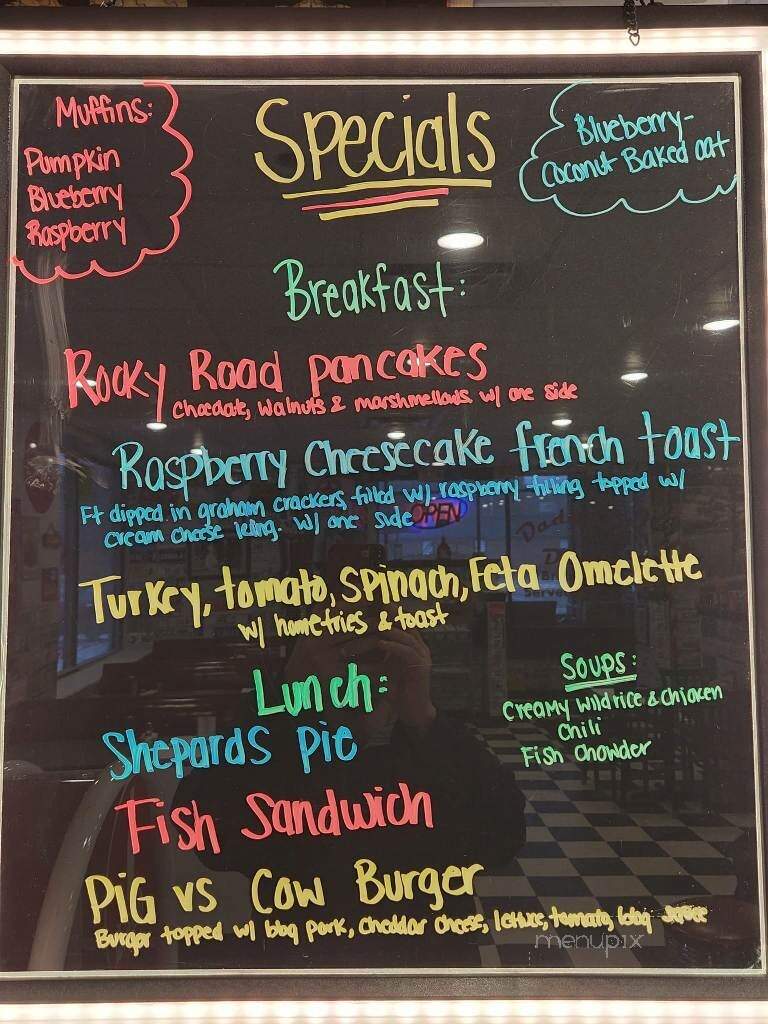 Specials
Muffins:
Pumpkin
Blueberry
Raspberry
Blueberry-
Coconut Baked oat
Breakfast:
Rocky Road pancakes
Chocolate, Walnuts & marshmellows w/ one side
Raspberry Cheesecake french toast
Ft dipped in graham crackers, filled w/ raspberry filling topped w/
cream cheese icing. w/ one side
OPEN
Turkey, tomato, Spinach, Feta Omelette
w/ homefries & toast
Lunch:
Shepards Pie
Fish Sandwich
Pig vs Cow Burger
Burger topped w/ bbq pork, cheddar cheese, lettuce, tomato, bbq
Soups:
Creamy wild rice & chicken
Chili
Fish Chowder
menupix